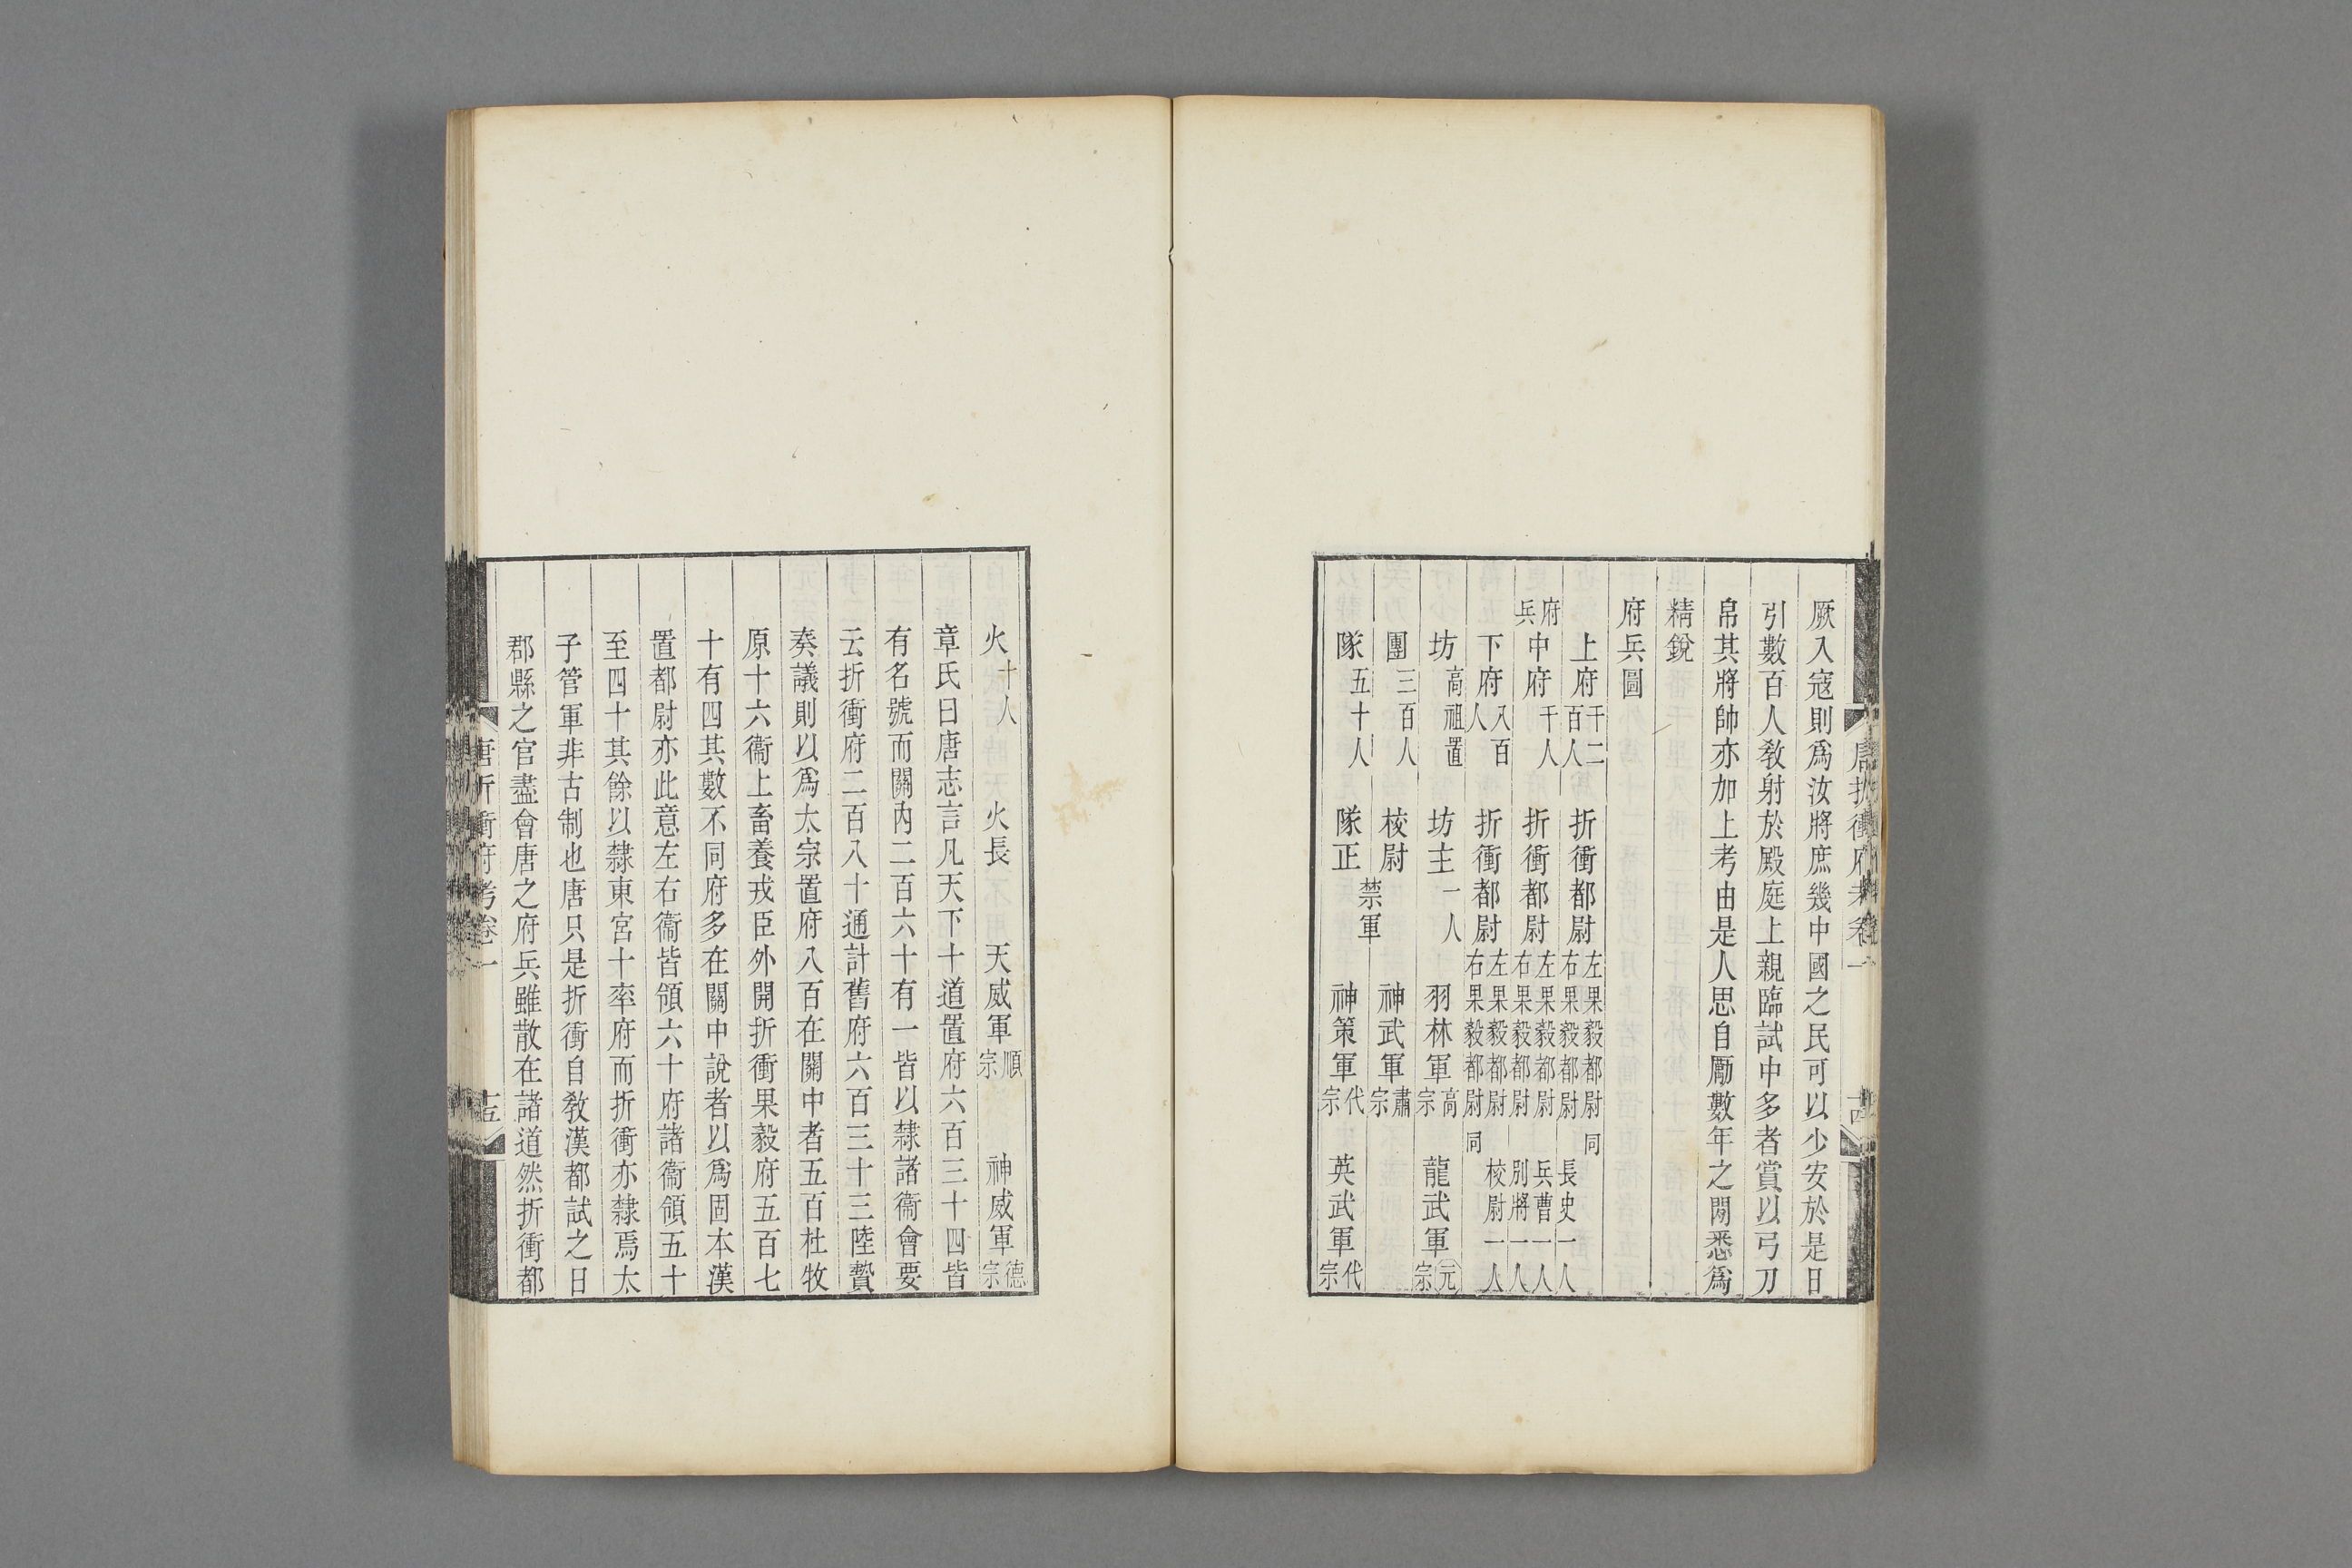 唐折衝府考卷一
十四
厥入寇則爲汝將庶幾中國之民可以少安於是日
引數百人教射於殿庭上親臨試中多者賞以弓刀
帛其將帥亦加上考由是人思自勵數年之閒悉爲
精銳
府兵圖
上府千二百人　折衝都尉左果毅都尉右果毅都尉同　長史一人
府兵　中府千人　折衝都尉左果毅都尉右果毅都尉　兵曹一人別將一人
下府八百人　折衝都尉左果毅都尉右果毅都尉同　校尉一人
坊高祖置　坊主一人　羽林軍高宗　龍武軍元宗
團三百人　校尉　禁軍　神武軍肅宗
隊五十人　隊正　神策軍代宗　英武軍代宗
火十人　火長　天威軍順宗　神威軍德宗
章氏曰唐志言凡天下十道置府六百三十四皆
有名號而關內二百六十有一皆以隸諸衞會要
云折衝府二百八十通計舊府六百三十三陸贄
奏議則以爲太宗置府八百在關中者五百杜牧
原十六衞上畜養戎臣外開折衝果毅府五百七
十有四其數不同府多在關中說者以爲固本漢
置都尉亦此意左右衞皆領六十府諸衞領五十
至四十其餘以隸東宮十率府而折衝亦隸焉太
子管軍非古制也唐只是折衝自敎漢都試之日
郡縣之官盡會唐之府兵雖散在諸道然折衝都
唐折衝府考卷一
十五